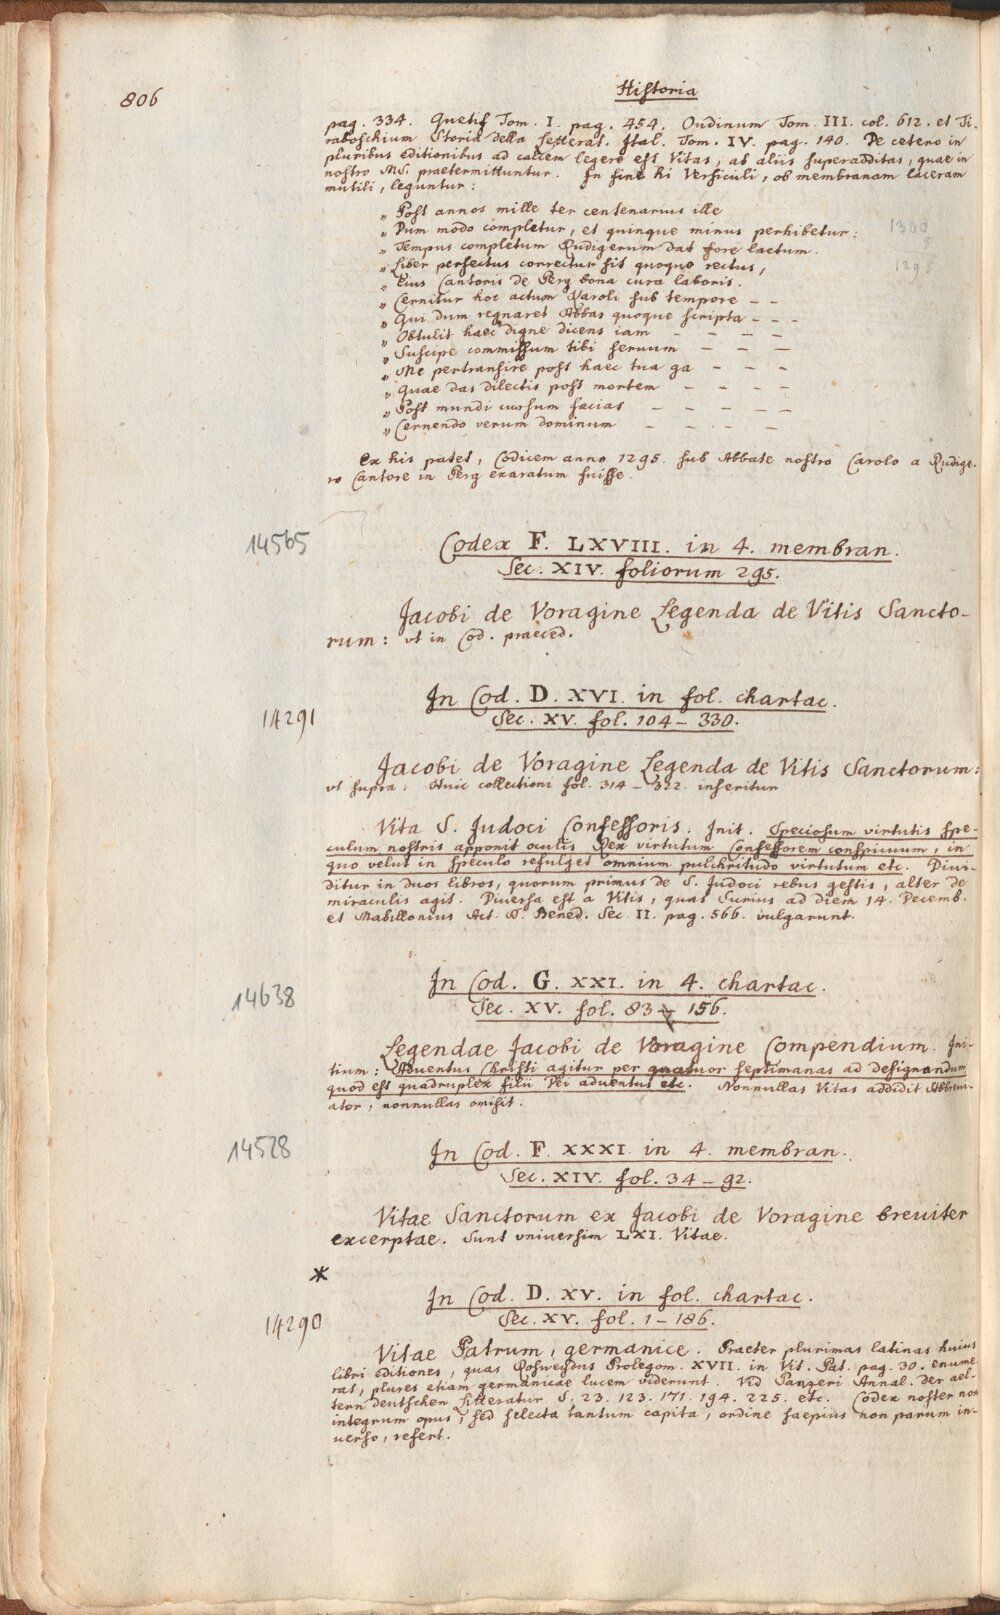 806
Historia
pag. 334. Quetif Tom. I. pag. 454. Oudinum Tom. III. col. 612. et Ti-
raboschium Storia della Letterat. Ital. Tom. IV. pag. 140. De cetero in
pluribus editionibus ad calcem legere est Vitas, ab aliis superadditas, quae in
nostro MS. praetermittuntur. In fine hi Versiculi, ob membranam laceram
mutili, leguntur:
„ Post annos mille ter centenarius ille
„ Dum modo completur, et quinque minus perhibetur: 1300
„ Tempus completum Rudigerum dat fore laetum. 5
„ Liber perfectus correctus sit quoque rectus, 1295
„ Eius Cantoris de Perg bona cura laboris.
„ Cernitur hoc actum Karoli sub tempore – –
„ Qui dum regnaret Abbas quoque scripta – – –
„ Obtulit haec digne dicens iam – – –
„ Suscipe commissum tibi seruum – – –
„ Me pertransire post haec tua ga – – –
„ Quae das dilectis post mortem – – – –
„ Post mundi cursum facias – – – – –
„ Cernendo verum dominum – – – –
Ex his patet, Codicem anno 1295. sub Abbate nostro Carolo a Rudige-
ro Cantore in Perg exaratum fuisse.
14565
Codex F. LXVIII. in 4. membran.
Sec. XIV. foliorum 295.
Jacobi de Voragine Legenda de Vitis Sancto-
rum: vt in Cod. praeced.
In Cod. D. XVI. in fol. chartac.
14291
Sec. XV. fol. 104 – 330.
Jacobi de Voragine Legenda de Vitis Sanctorum:
vt supra. Huic collectioni fol. 314 – 322. inseritur
Vita S. Judoci Confessoris. Init. Speciosum virtutis spe-
culum nostris apponit oculis Rex virtutum Confessorem conspicuum, in
quo velut in speculo refulget omnium pulchritudo virtutum etc. Diui-
ditur in duos libros, quorum primus de S. Judoci rebus gestis, alter de
miraculis agit. Diuersa est a Vitis, quas Surius ad diem 14. Decemb.
et Mabillonius Act. S. Bened. Sec. II. pag. 566. vulgarunt.
In Cod. G. XXI. in 4. chartac.
14638
Sec. XV. fol. 83 – 156.
Legendae Jacobi de Voragine Compendium. Ini-
tium: Aduentus Christi agitur per quatuor septimanas ad designandum
quod est quadruplex filii Dei aduentus etc. Nonnullas Vitas addidit Abbreui-
ator, nonnullas omisit.
14528
In Cod. F. XXXI. in 4. membran.
Sec. XIV. fol. 34 – 92.
Vitae Sanctorum ex Jacobi de Voragine breuiter
excerptae. Sunt vniuersim LXI. Vitae.
*
In Cod. D. XV. in fol. chartac.
14290
Sec. XV. fol. 1 – 186.
Vitae Patrum, germanice. Praeter plurimas latinas huius
libri editiones, quas Rosweydus Prolegom. XVII. in Vit. Pat. pag. 30. enume
rat, plures etiam germanicae lucem viderunt. Vid Panzeri Annal. der ael-
tern deutschen Litteratur S. 23. 123. 171. 194. 225. etc. Codex noster non
integrum opus, sed selecta tantum capita, ordine saepius non parum in-
uerso, refert.